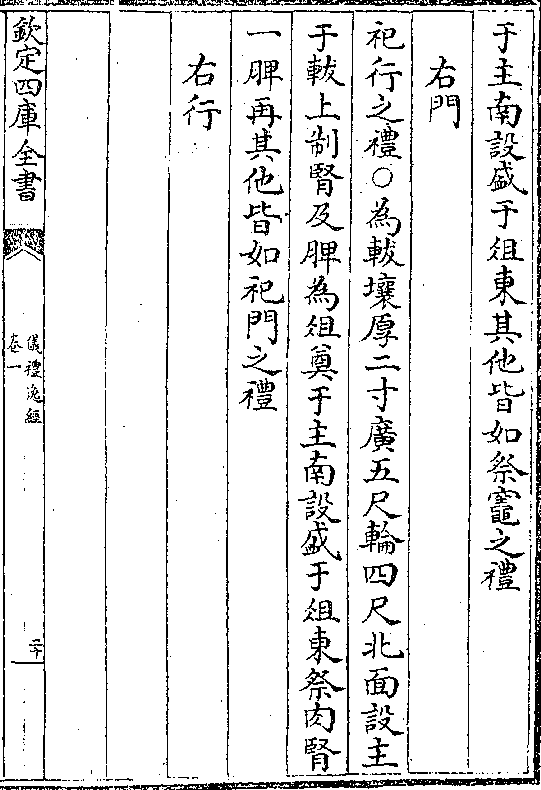 于主南設盛于俎東其他皆如祭竈之禮
右門
祀行之禮○為軷壤厚二寸廣五尺輪四尺北面設主
于軷上制腎及脾為俎奠于主南設盛于俎東祭肉腎
一脾再其他皆如祀門之禮
右行
欽定四庫全書
儀禮逸經
卷一
二十